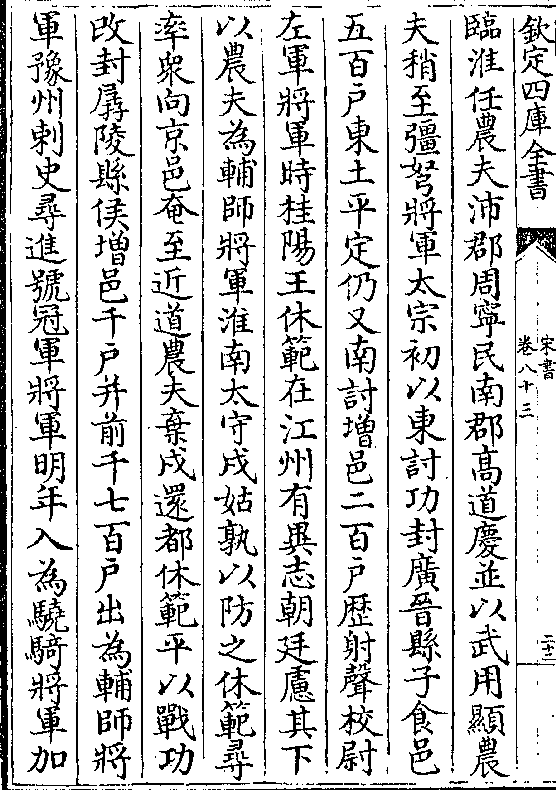 欽定四庫全書
宋書
卷八十三
二十二
臨淮任農夫沛郡周寧民南郡高道慶並以武用顯農
夫稍至彊弩將軍太宗初以東討功封廣晉縣子食邑
五百戸東土平定仍又南討增邑二百戸歴射聲校尉
左軍將軍時桂陽王休範在江州有異志朝廷慮其下
以農夫為輔師將軍淮南太守戍姑孰以防之休範尋
率衆向京邑奄至近道農夫棄戍還都休範平以戰功
改封孱陵縣侯增邑千戸并前千七百戸出為輔師將
軍豫州刺史尋進號冠軍將軍明年入為驍騎將軍加